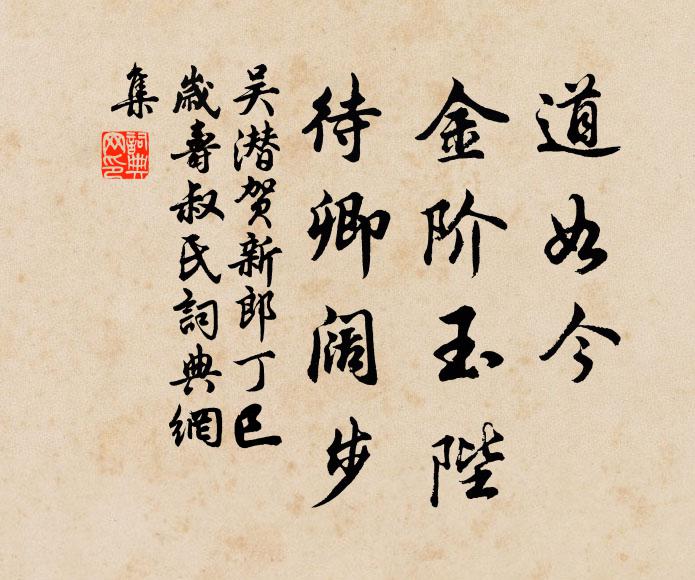 道如今
金阶玉陛
待卿阔步
吴潜贺新郎丁巳
岁寿叔氏詞典網
集
詞典
网印